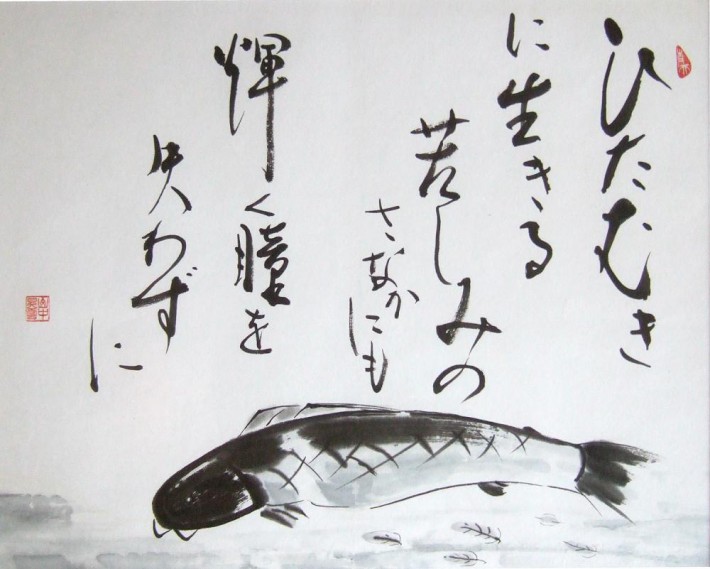 ひたむき
に生きる
苦しみの
さなかにも
輝く瞳を
失わず
に